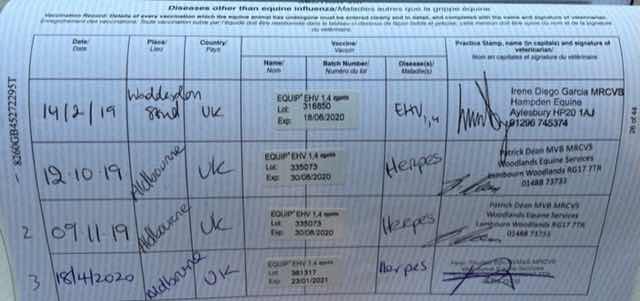 Diseases other than equine influenza/Maladies autres que la grippe équine
Vaccination Record: Details of every vaccination which the equine animal has undergone must be entered clearly and in detail, and completed with the name and signature of veterinarian.
Date/ Place/ Country/ Vaccine/ Practice Stamp, name (in capitals) and signature of
Date Lieu Pays Vaccin veterinarian/
Nom en capitales et signature du vétérinaire
Name/ Batch Number/ Disease(s)/
Nom Numéro du lot Maladie(s)
8260GB45272295T
26 of 44
14/2/19 Waddesdon UK
EQUIP EHV 1,4
Lot: 316850
Exp: 18/06/2020
EHV 1,4
Irene Diego Garcia MRCVS
Hampden Equine
Aylesbury HP20 1AJ
01296 745374
12.10.19 Aldbourne UK
EQUIP EHV 1,4
Lot: 335073
Exp: 30/08/2020
Herpes
Patrick Dean MVB MRCVS
Woodlands Equine Services
Lambourn Woodlands RG17 7TR
01488 73733
2 09.11.19 Aldbourne UK
EQUIP EHV 1,4
Lot: 335073
Exp: 30/08/2020
Herpes
Patrick Dean MVB MRCVS
Woodlands Equine Services
Lambourn Woodlands RG17 7TR
01488 73733
3 18/4/2020 Aldbourne UK
EQUIP EHV 1,4
Lot: 381317
Exp: 23/01/2021
Herpes